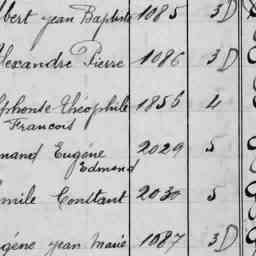 lbert Jean Baptiste 1085 3D
lexandre Pierre 1086 3D
lphonse Théophile 1856 4
François
rnand Eugène 2029 5
Edmond
mile Constant 2030 5
gène Jean Marie 1087 3D